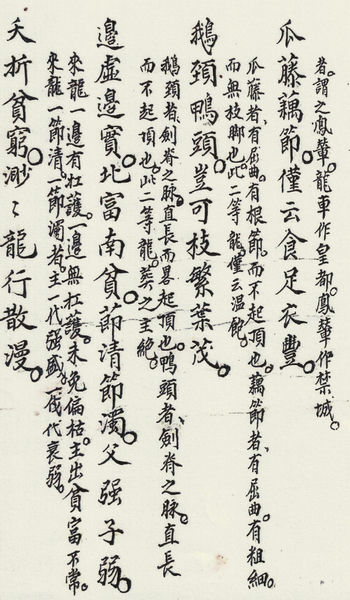 者謂之鳳輦。龍車作皇都。鳳輦作禁城。
瓜藤藕節。僅云食足衣豐。
瓜藤者。有屈曲。有根節。而不起頂也。藕節者。有屈曲。有粗細。
而無枝脚也。此二等龍。僅云温飽。
鵝頚鴨頭。豈可枝繁葉茂。
鵝頚者。劍脊之脉。直長而畧起頂也。鴨頭者。劍脊之脉。直長
而不起頂也。此二等龍。葬之主絶。
邉虚邉實。北富南貧。節清節濁。父强子弱。
來龍一邉有扛護。一邉無扛護。未免偏枯。主出貧富不常。
來龍一節清。一節濁者。主一代强盛。一代衰弱。
夭折貧窮。渺渺龍行散漫。